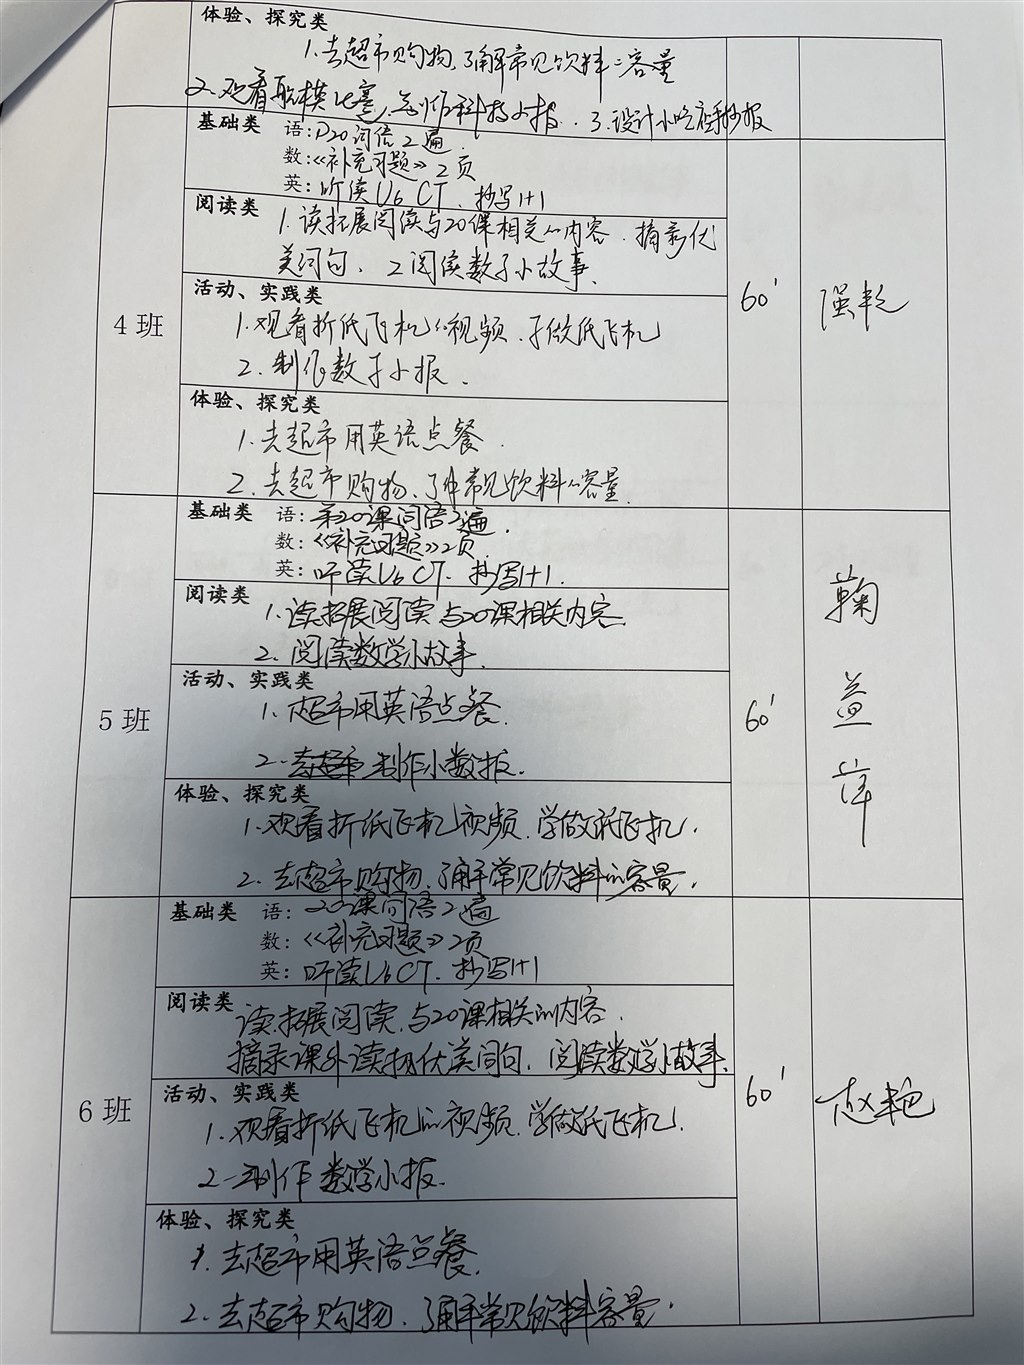 体验、探究类
1.去超市购物,了解常见饮料的容量
2.观看航模比赛,制作科技小报.3.设计小吃店手抄报
基础类 语:P20词语2遍.
数:《补充习题》2页
英:听读U6 CT.抄写1+1
阅读类
1.读拓展阅读与20课相关的内容.摘录优
美词句.2.阅读数学小故事.
4班
活动、实践类
1.观看折纸飞机的视频.学做纸飞机
2.制作数学小报.
60'
体验、探究类
1.去超市用英语点餐.
2.去超市购物、了解常见饮料的容量.
基础类 语:第20课词语2遍.
数:《补充习题》2页.
英:听读U6 CT.抄写1+1.
阅读类
1.读拓展阅读与20课相关内容.
2.阅读数学小故事.
5班
活动、实践类
1.超市用英语点餐.
2.制作小数报.
60'
鞠
益
萍
体验、探究类
1.观看折纸飞机视频.学做纸飞机.
2.去超市购物.了解常见饮料的容量.
基础类 语:20课词语2遍
数:《补充习题》2页
英:听读U6 CT.抄写1+1
阅读类
读拓展阅读.与20课相关的内容.
摘录课外读物优美词句.阅读数学小故事.
6班
活动、实践类
1.观看折纸飞机的视频.学做纸飞机.
2.制作数学小报.
60'
赵艳
体验、探究类
1.去超市用英语点餐.
2.去超市购物.了解常见饮料容量.